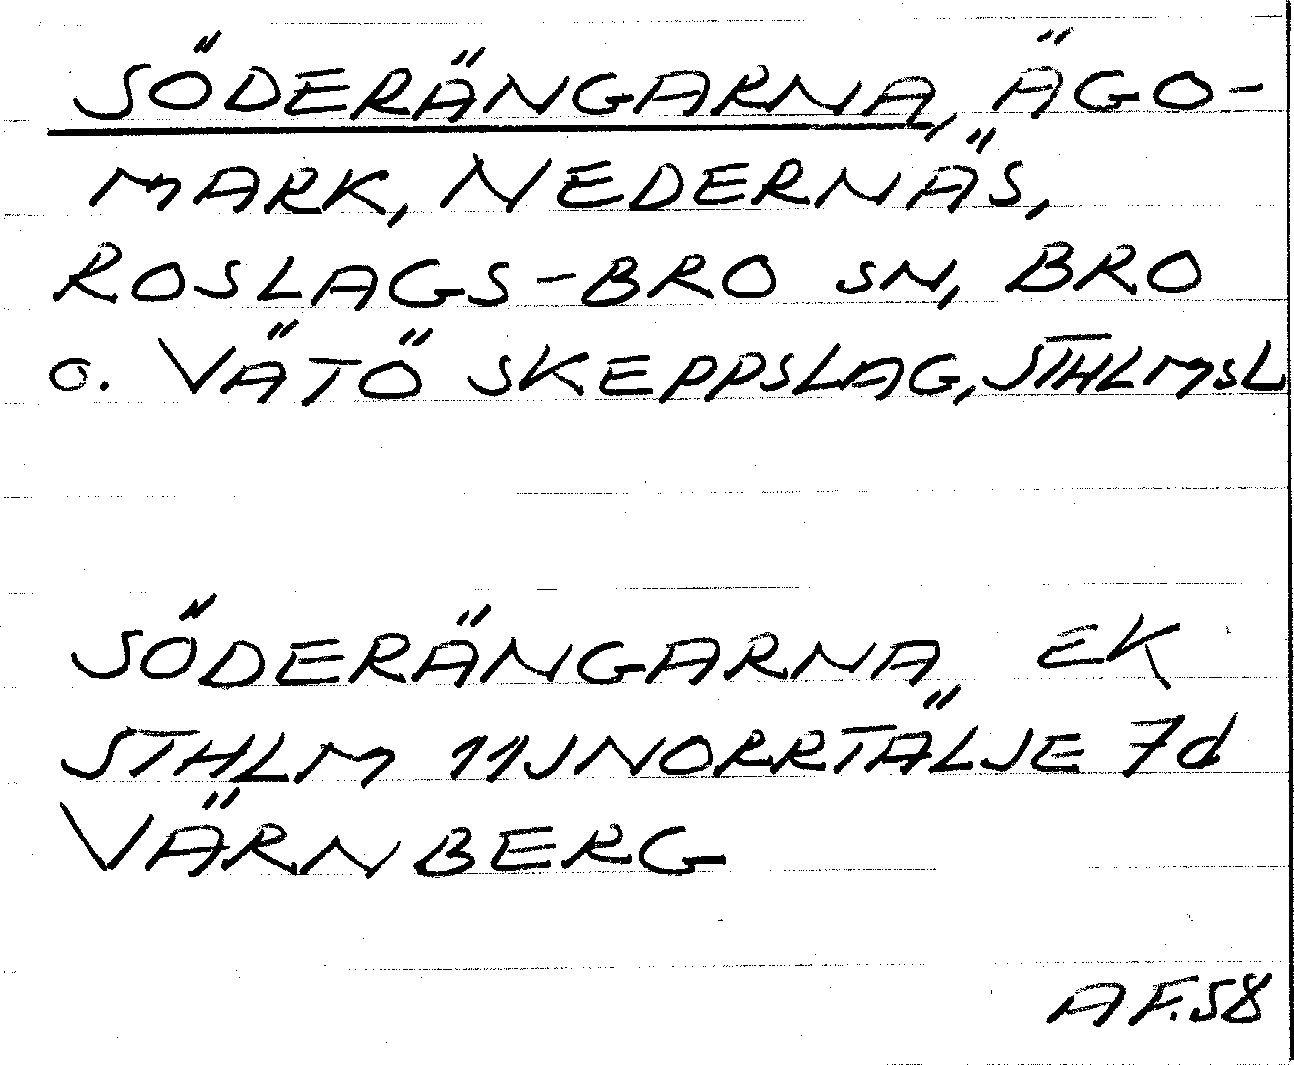 SÖDERÄNGARNA, ÄGO-
MARK, NEDERNÄS,
ROSLAGS-BRO SN, BRO
O. VÄTÖ SKEPPSLAG, STHLMSL
SÖDERÄNGARNA EK
STHLM 11J NORRTÄLJE 7d
VÄRNBERG
A F. 58